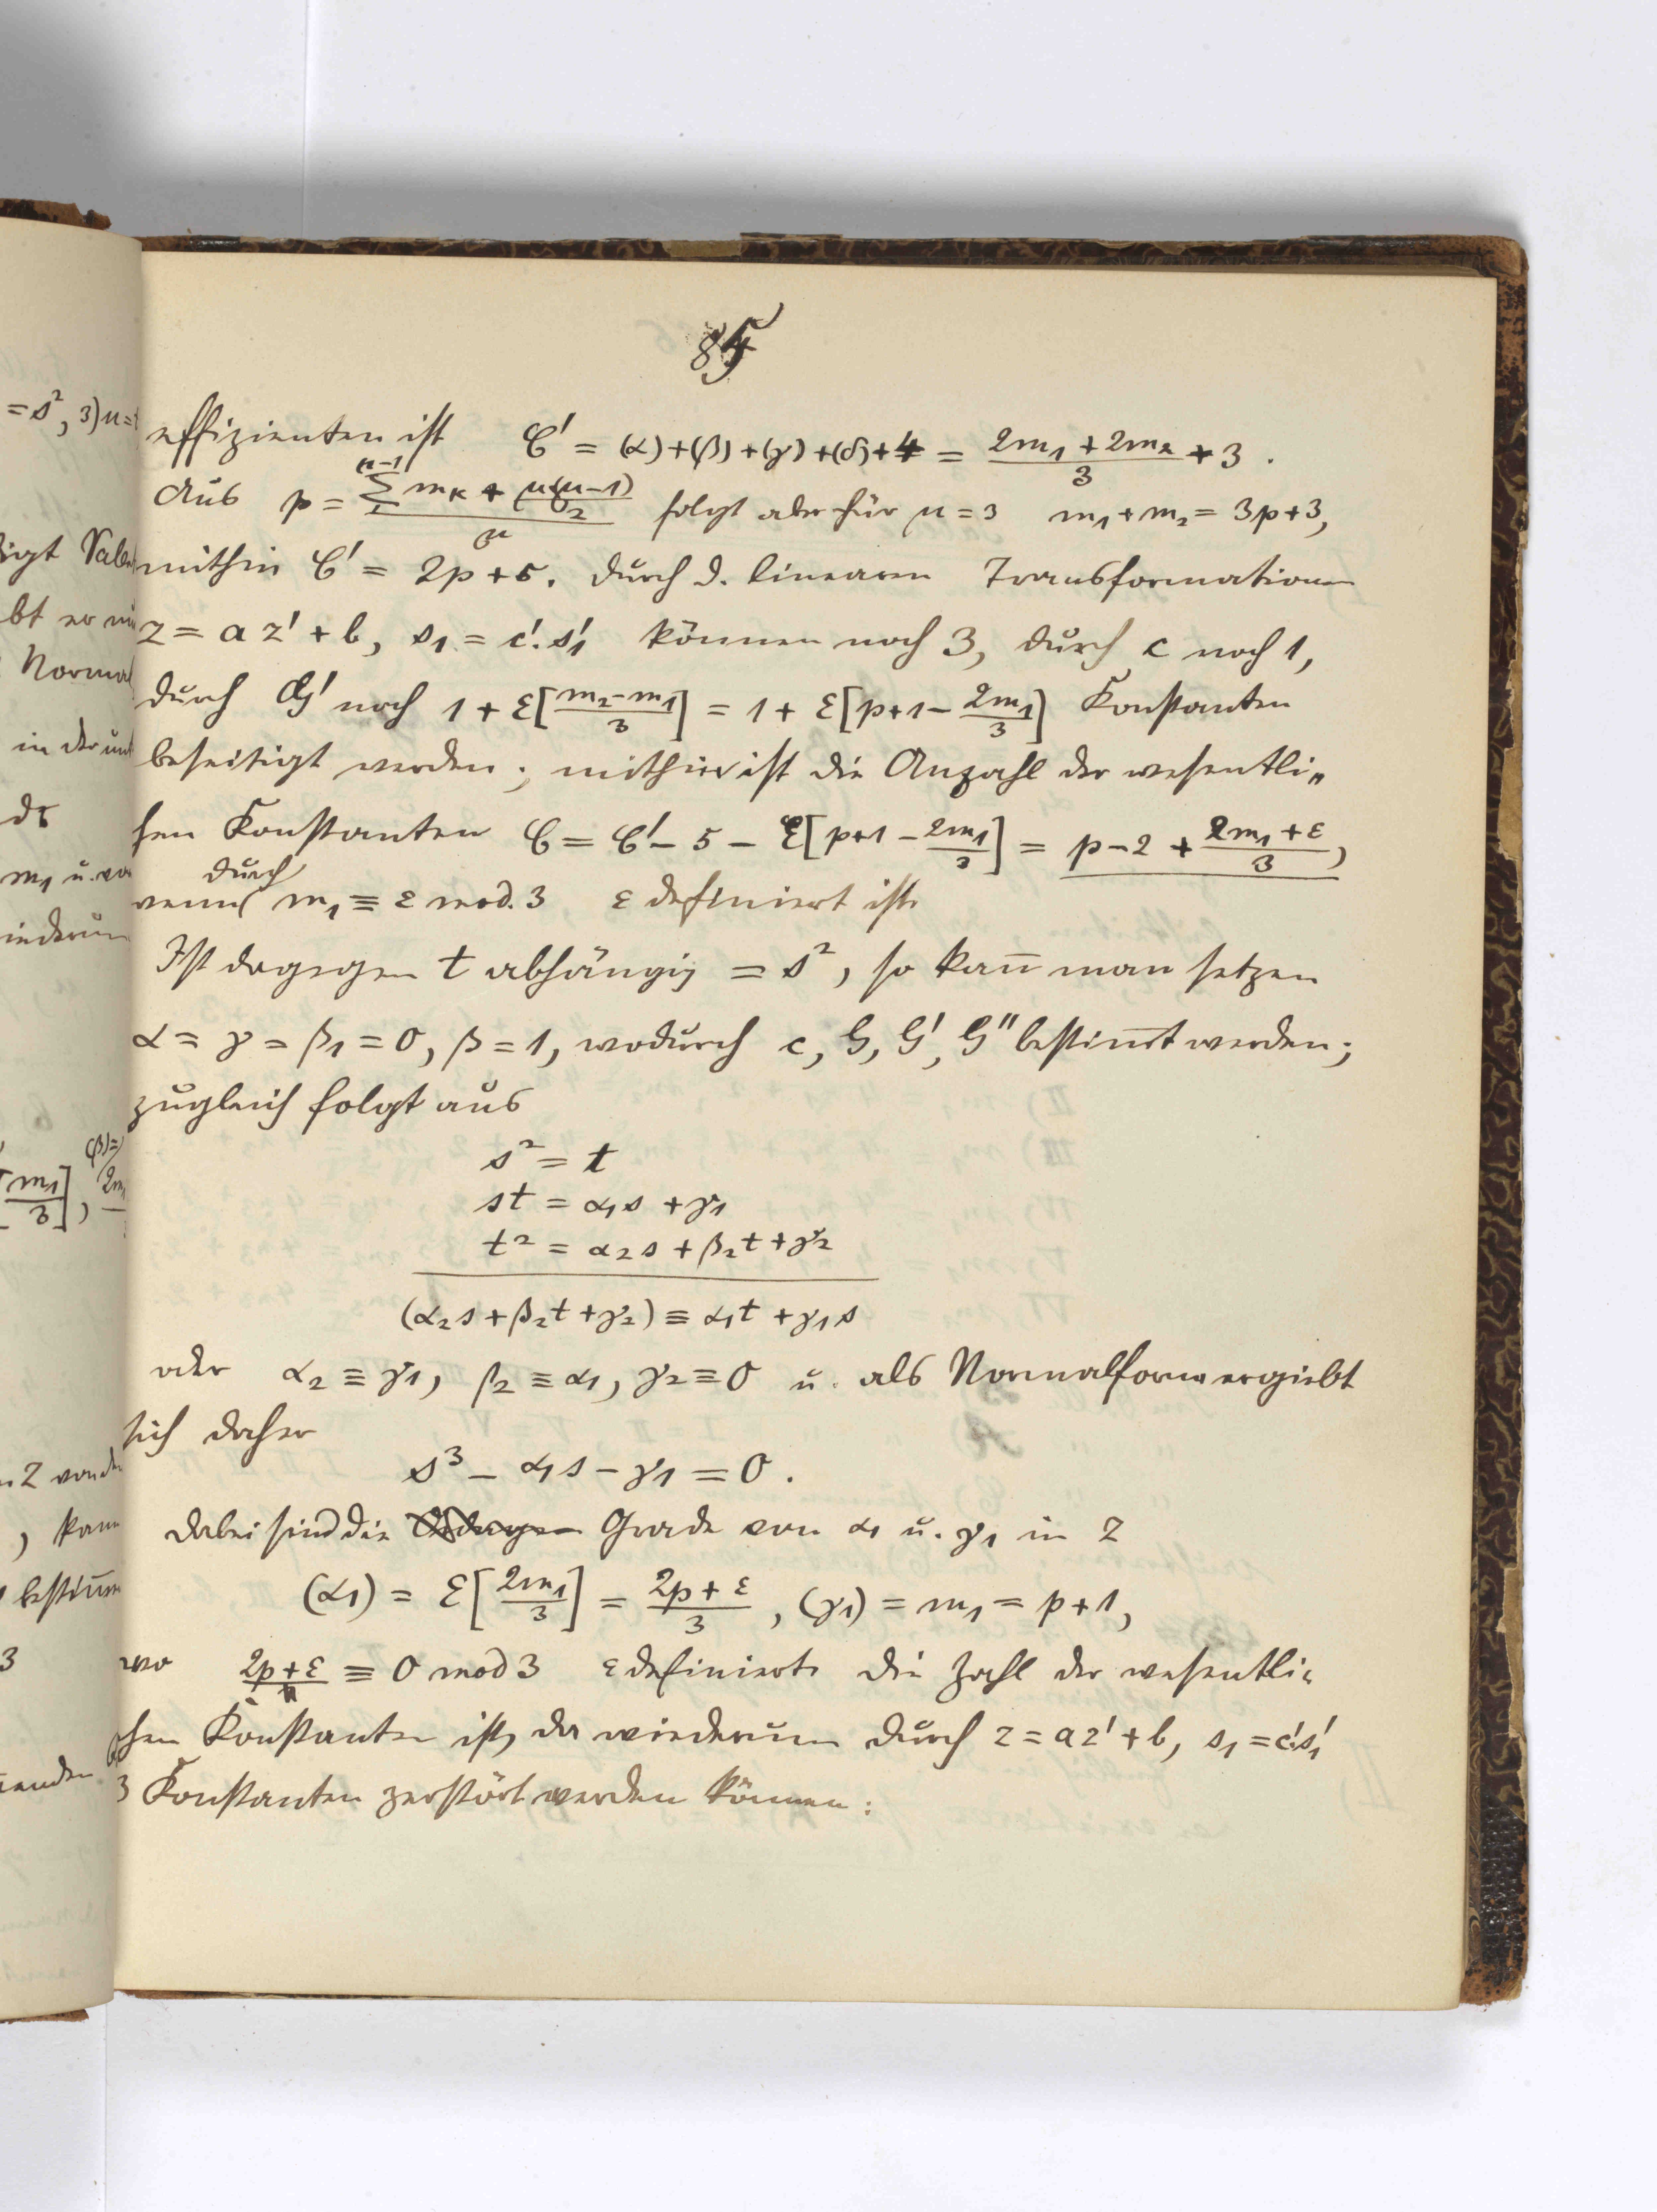 85
effizienten ist C' = (α)+(β)+(γ)+(δ)+4 = (2m₁+2m₂)/3 + 3.
Aus p = (∑₁ⁿ⁻¹ mₖ + n(n-1)/2)/n folgt aber für n = 3 m₁+m₂ = 3p+3,
mithin C' = 2p+5. Durch d. linearen Transformationen
z = a z' + b, s₁ = c'. s₁' können noch 3, durch c noch 1,
durch G' noch 1 + E[(m₂-m₁)/3] = 1 + E[p+1-2m₁/3] Konstanten
beseitigt werden; mithin ist die Anzahl der wesentli„
chen Konstanten C = C' - 5 - E[p+1 - 2m₁/3] = p-2 + (2m₁+ε)/3,
wenn durch m₁ ≡ ε mod. 3 ε definiert ist.
Ist dagegen t abhängig = s², so kann̄ man setzen
α = γ = β₁ = 0, β = 1, wodurch c, G, G', G'' bestim̄t werden;
zugleich folgt aus
s² = t
st = α₁s + γ₁
t² = α₂s + β₂t + γ₂
(α₂s + β₂t + γ₂) ≡ α₁t + γ₁s
oder α₂ ≡ γ₁, β₂ ≡ α₁, γ₂ ≡ 0 u. als Normalform ergiebt
sich daher
s³ - α₁s - γ₁ = 0.
Dabei sind die Grade von α₁ u. γ₁ in z
(α₁) = E[2m₁/3] = (2p+ε)/3, (γ₁) = m₁ = p+1,
wo (2p+ε)/n ≡ 0 mod 3 ε definiert. Die Zahl der wesentli-
chen Konstanten ist, da wiederum durch z = az' + b, s₁ = c's₁'
3 Konstanten zerstört werden können: